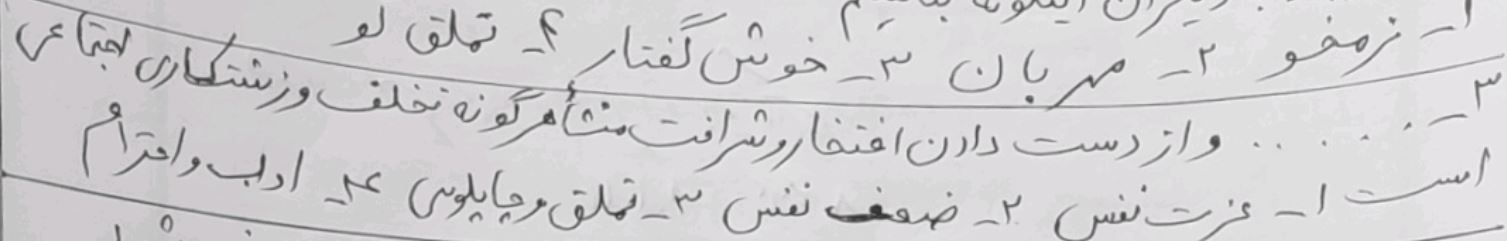 دیگران اینگونه بباشیم
۱ـ نرمخو ۲ـ مهربان ۳ـ خوش گفتار ۴ـ تملق گو
۳ـ ..... و از دست دادن افتخار و شرافت منشأ هر گونه تخلف و زشتکاری اجتماعی
است ۱ـ عزت نفس ۲ـ ضعف نفس ۳ـ تملق و چاپلوسی ۴ـ ادب و احترام